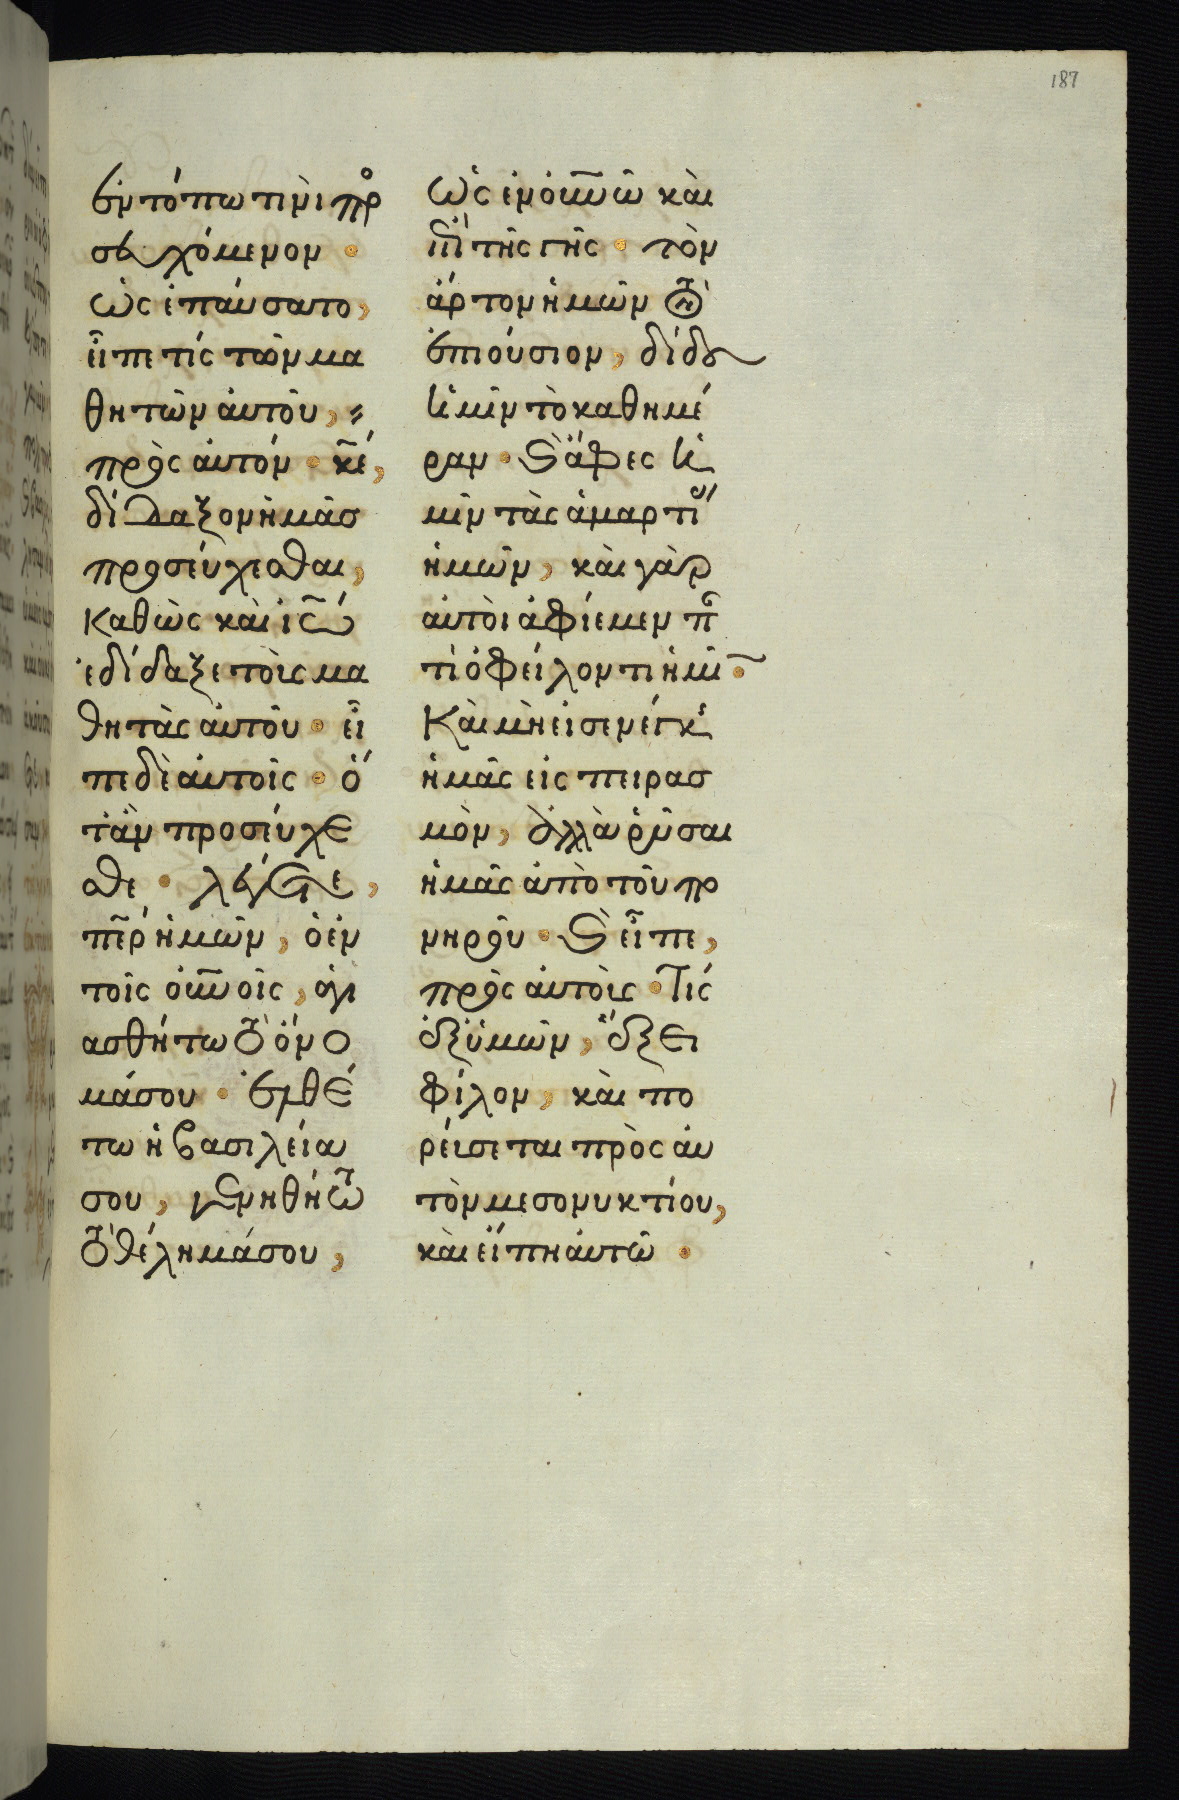 187
ἐν τόπω τινὶ προ
σευχόμενον ·
ὡς ἐπαύσατο,
εἶπέ τις τῶν μα
θητῶν ἀυτοῦ,
πρὸς ἀυτόν · κ̅ε,
δίδαξον ἡμᾶσ
προσέυχεσθαι,
Καθὼς καὶ ἰω̅
ἐδίδαξε τοὶς μα
θητὰς ἀυτοῦ · εἶ
πε δὲ ἀυτοῖς · ὅ
τὰν προσέυχε
σθε · λέγετε,
π̅ερ ἡμῶν, ὁ ἐν
τοῖς ο̅υνοῖς, ἁγι
ασθήτω τὸ όνο
μά σου · ἐλθέ
τω ἡ βασιλεία
σου, γενηθήτω
τὸ θέλημά σου,
ὡς ἐν ο̅υνῶ καὶ
ἐπὶ τῆς γῆς · τὸν
ἄρτον ἡμῶν τὸν
ἐπιούσιον, δίδου
ἡμῖν τὸ καθημέ
ραν · ϛ ἄφες ἡ
μῖν τὰς ἁμαρτί
ἡμῶν, καὶ γὰρ
ἀυτοὶ ἀφίεμεν π
τὶ ὀφείλοντι ἡμῖ ·
Καὶ μὴ εἰσενέγκῃς
ἡμᾶς εἰς πειρασ
μὸν, ἀλλὰ ῥῦσαι
ἡμᾶς ἀπὸ τοῦ πο
νηροῦ · ϛ εἶπε,
πρὸς ἀυτοὶς · Τίς
ἐξ ὑμῶν, ἕξει
φίλον, καὶ πο
ρέυσεται πρὸς ἀυ
τὸν μεσονυκτίου,
καὶ εἴπη ἀυτῶ ·